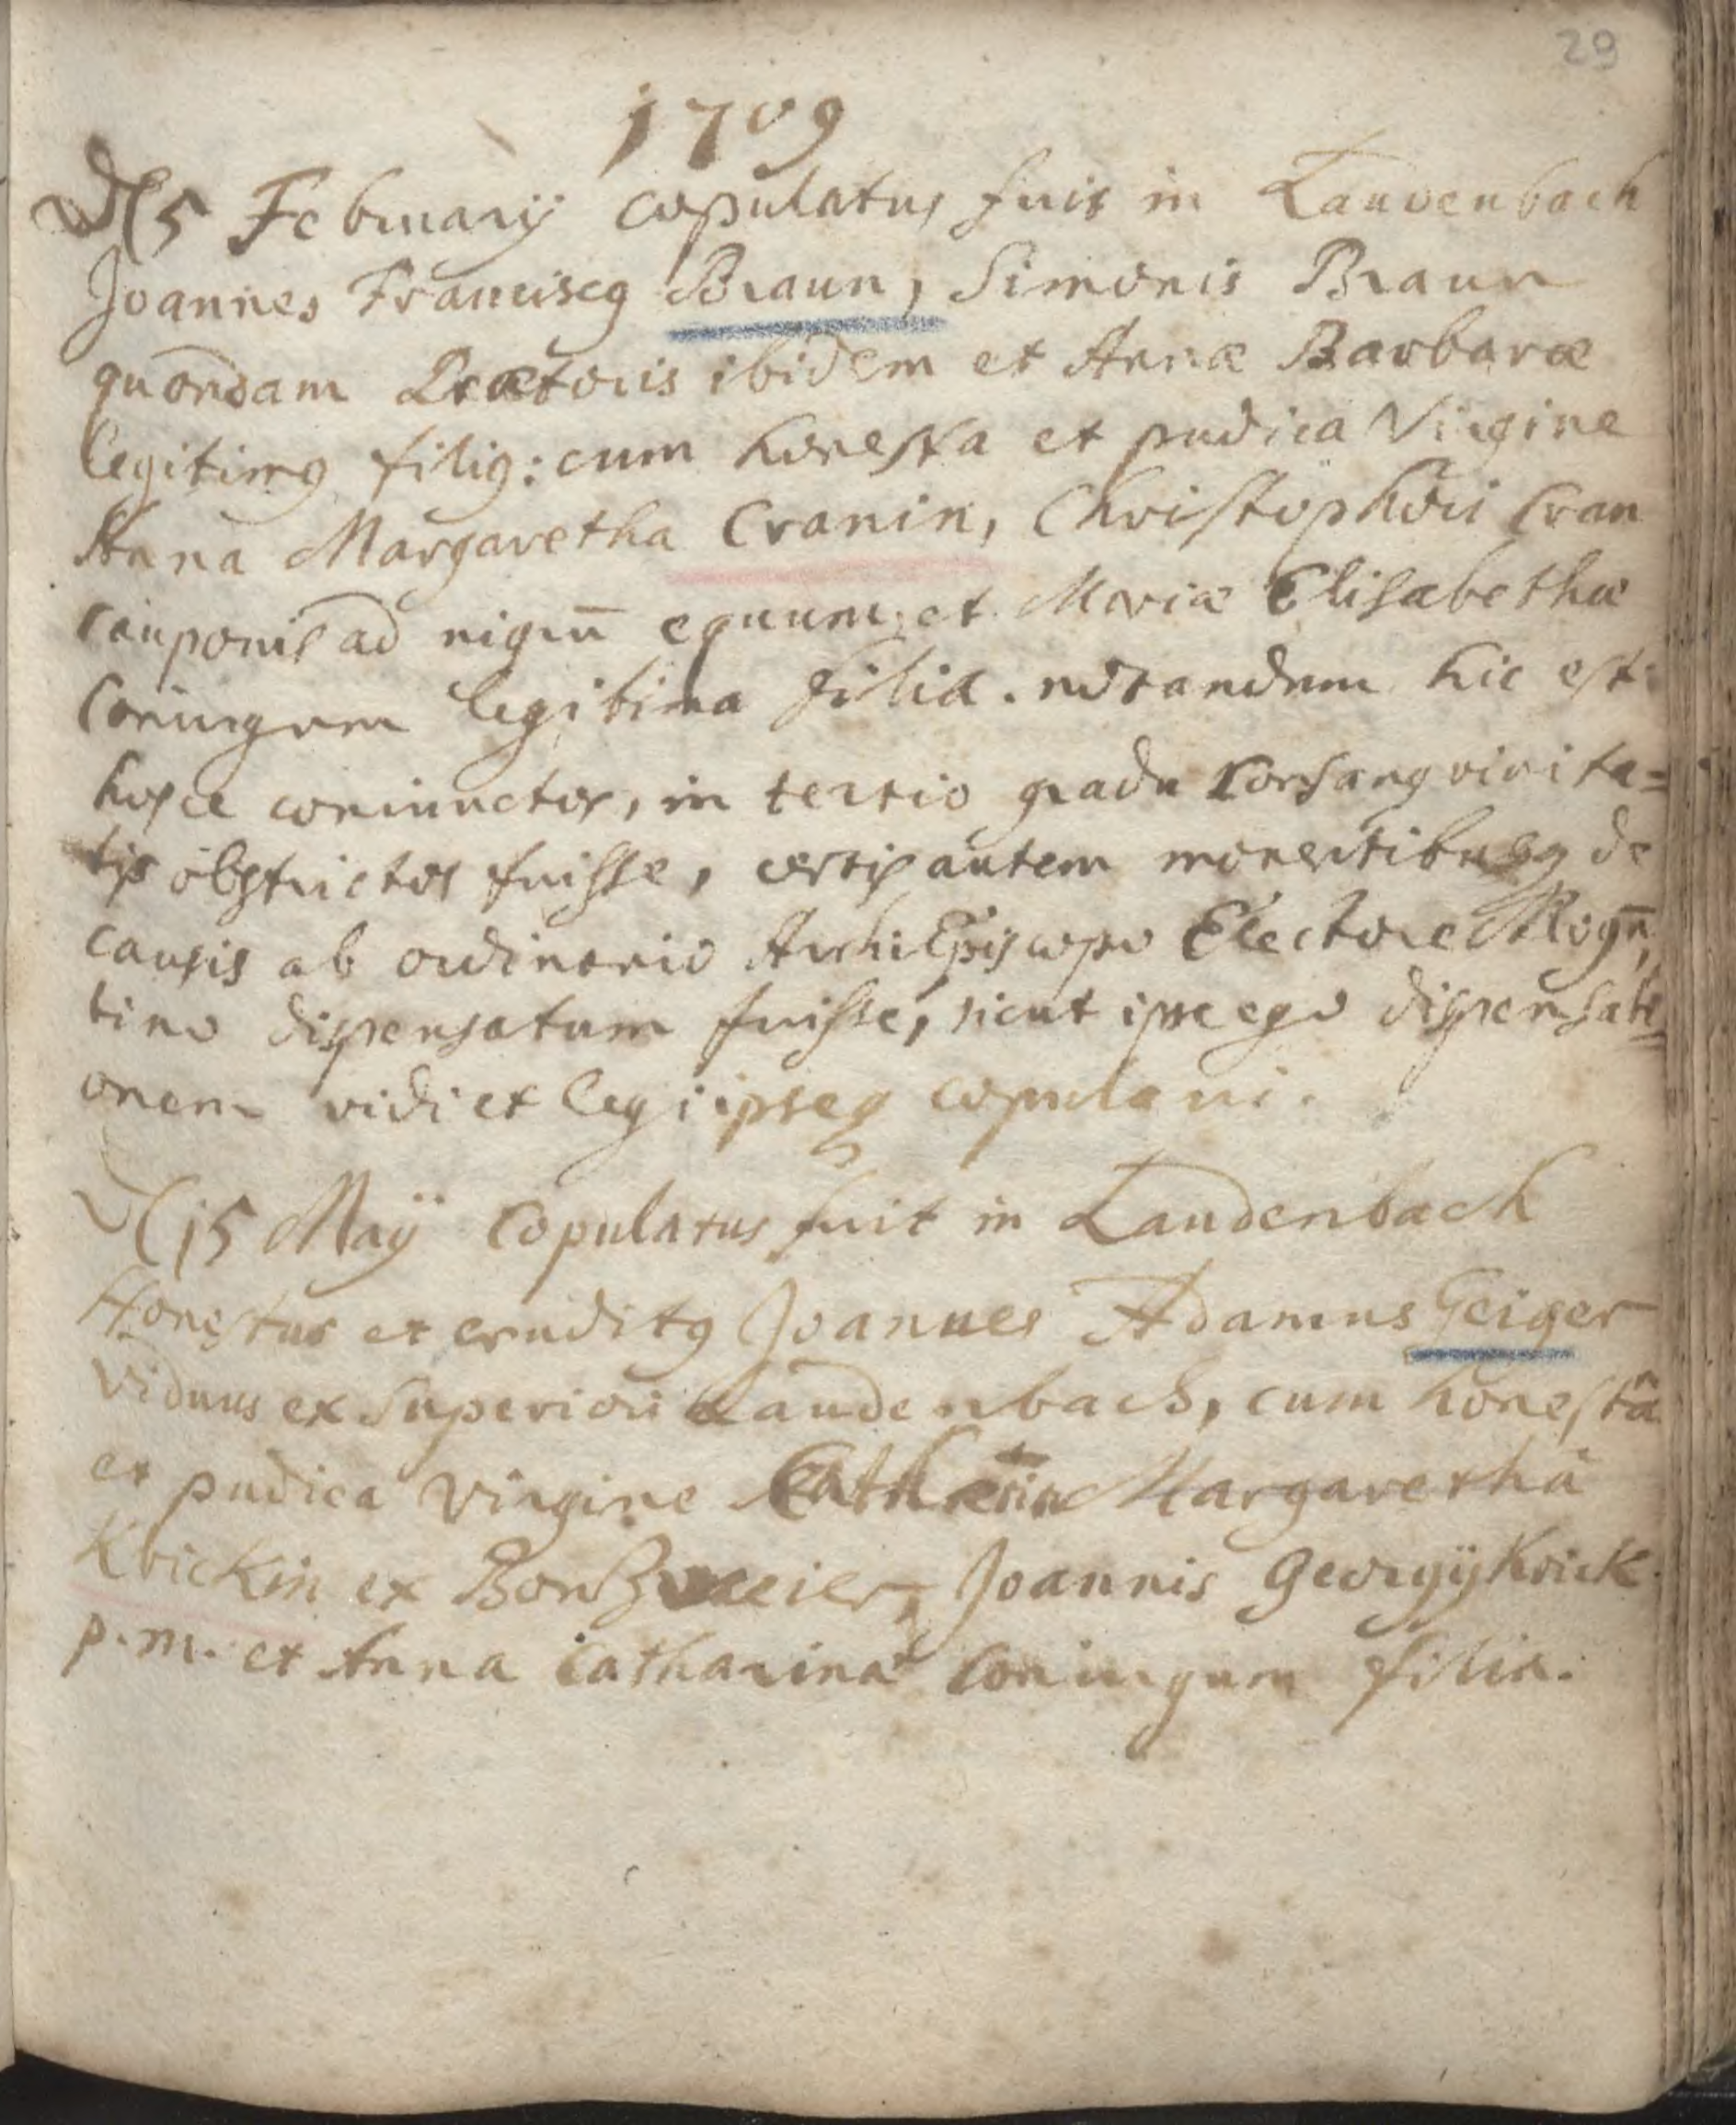 29
1709
D 5 Februarÿ copulatus fuit in Laudenbach
Joannes Franciscq Braun, Simonis Braun
quondam Prætoris ibidem et Annæ Barbaræ
legitimq filiq: cum honesta et pudica Virgine
Anna Margaretha Cranin, Christophori Cran
Cauponis ad nigrū equum et Mariæ Elisabethæ
Coniugum legitima filia. notandum hic est:
hosce coniunctos, in tertio gradu Consangvinita=
tis obstrictos fuisse, certis autem moventibusq de
causis ab ordinario ArchiEpiscopo Electore Mogū
tino dispensatum fuisse, sicut ipse ego dispensati=
onem vidi et legi ipseq copulavi.
D 15 Maÿ Copulatus fuit in Laudenbach
Honestus et eruditq Joannes Adamus Geiger
Viduus ex Superiori Laudenbach, cum honestâ
et pudica Virgine Margarethâ
Krickin ex Joannis Georgÿ Krick
p. m. et Anna Catharina Coniugum filia.